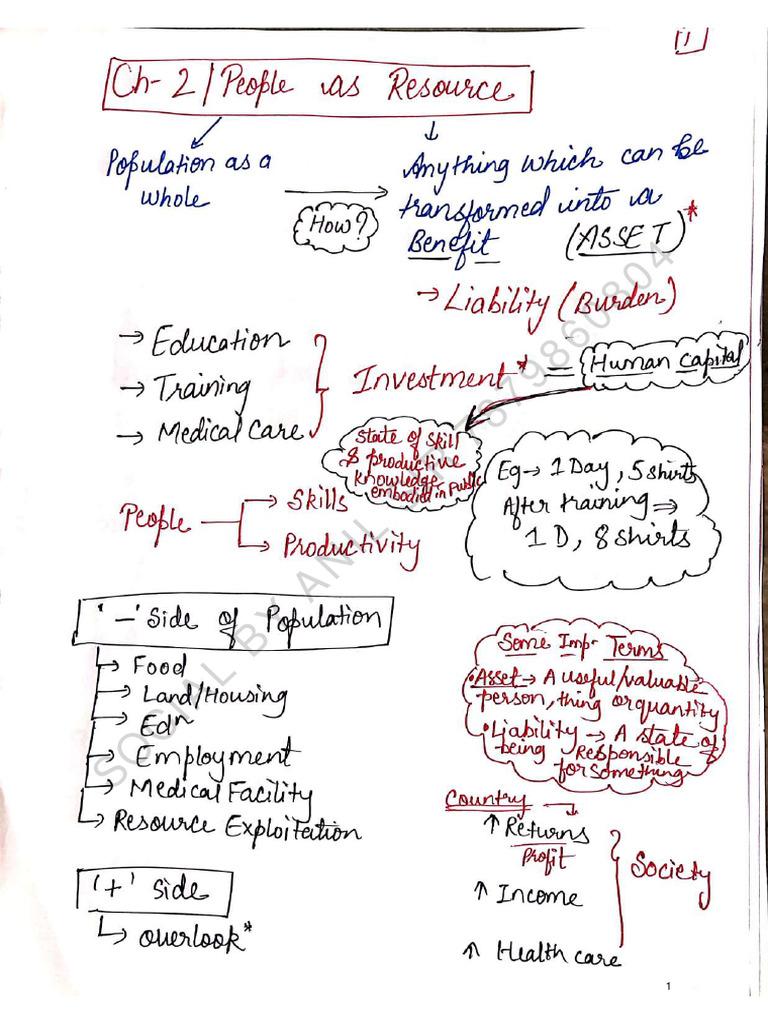 1
Ch-2/People as Resource
Population as a
whole
How?
Anything which can be
transformed into a
Benefit (ASSET)*
→ Liability (Burden)
→ Education
→ Training
→ Medical Care
Investment* = Human Capital
State of Skill
& productive
knowledge
embodied in public
People
→ Skills
→ Productivity
Eg → 1 Day, 5 shirts
After training ⇒
1 D, 8 shirts
'-' Side of Population
→ Food
→ Land/Housing
→ Edⁿ
→ Employment
→ Medical Facility
→ Resource Exploitation
'+' side
↳ overlook*
Some Imp. Terms
• Asset → A useful/valuable
person, thing or quantity
• Liability → A state of
being Responsible
for something
Country
↑ Returns
Profit
↑ Income
↑ Health care
Society
SOCIAL BY ANIL
7879860804
1